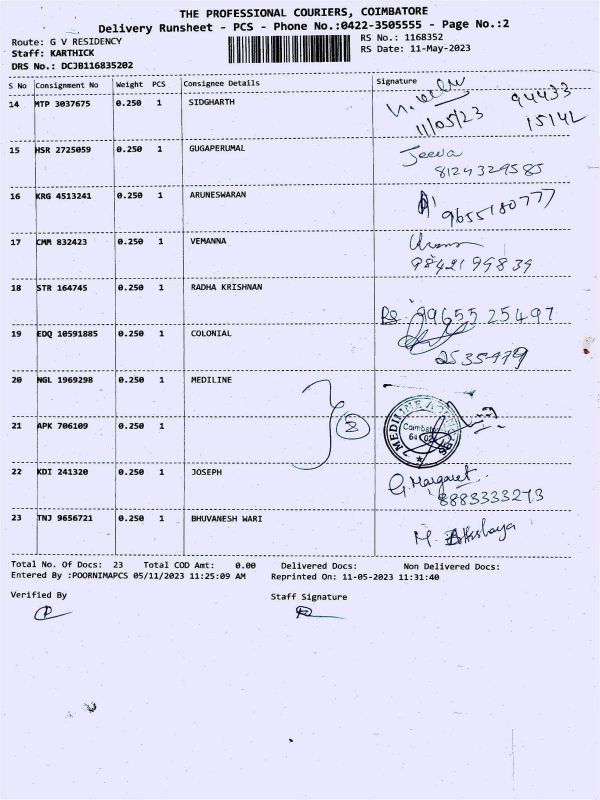 THE PROFESSIONAL COURIERS, COIMBATORE
Delivery Runsheet - PCS - Phone No.:0422-3505555 - Page No.:2
Route: G V RESIDENCY
RS No.: 1168352
Staff: KARTHICK
RS Date: 11-May-2023
DRS No.: DCJB116835202
S No Consignment No Weight PCS Consignee Details Signature
14 MTP 3037675 0.250 1 SIDGHARTH
94433
11/05/23 15142
15 HSR 2725059 0.250 1 GUGAPERUMAL Jeeva
8124329585
16 KRG 4513241 0.250 1 ARUNESWARAN
9655180777
17 CMM 832423 0.250 1 VEMANNA
9842199839
18 STR 164745 0.250 1 RADHA KRISHNAN
99655 25497
19 EDQ 10591885 0.250 1 COLONIAL
2535479
20 NGL 1969298 0.250 1 MEDILINE
2
21 APK 706109 0.250 1
22 KDI 241320 0.250 1 JOSEPH G. Margaret
8883333273
23 TNJ 9656721 0.250 1 BHUVANESH WARI M. Akshaya
Total No. Of Docs: 23 Total COD Amt: 0.00 Delivered Docs: Non Delivered Docs:
Entered By :POORNIMAPCS 05/11/2023 11:25:09 AM Reprinted On: 11-05-2023 11:31:40
Verified By Staff Signature